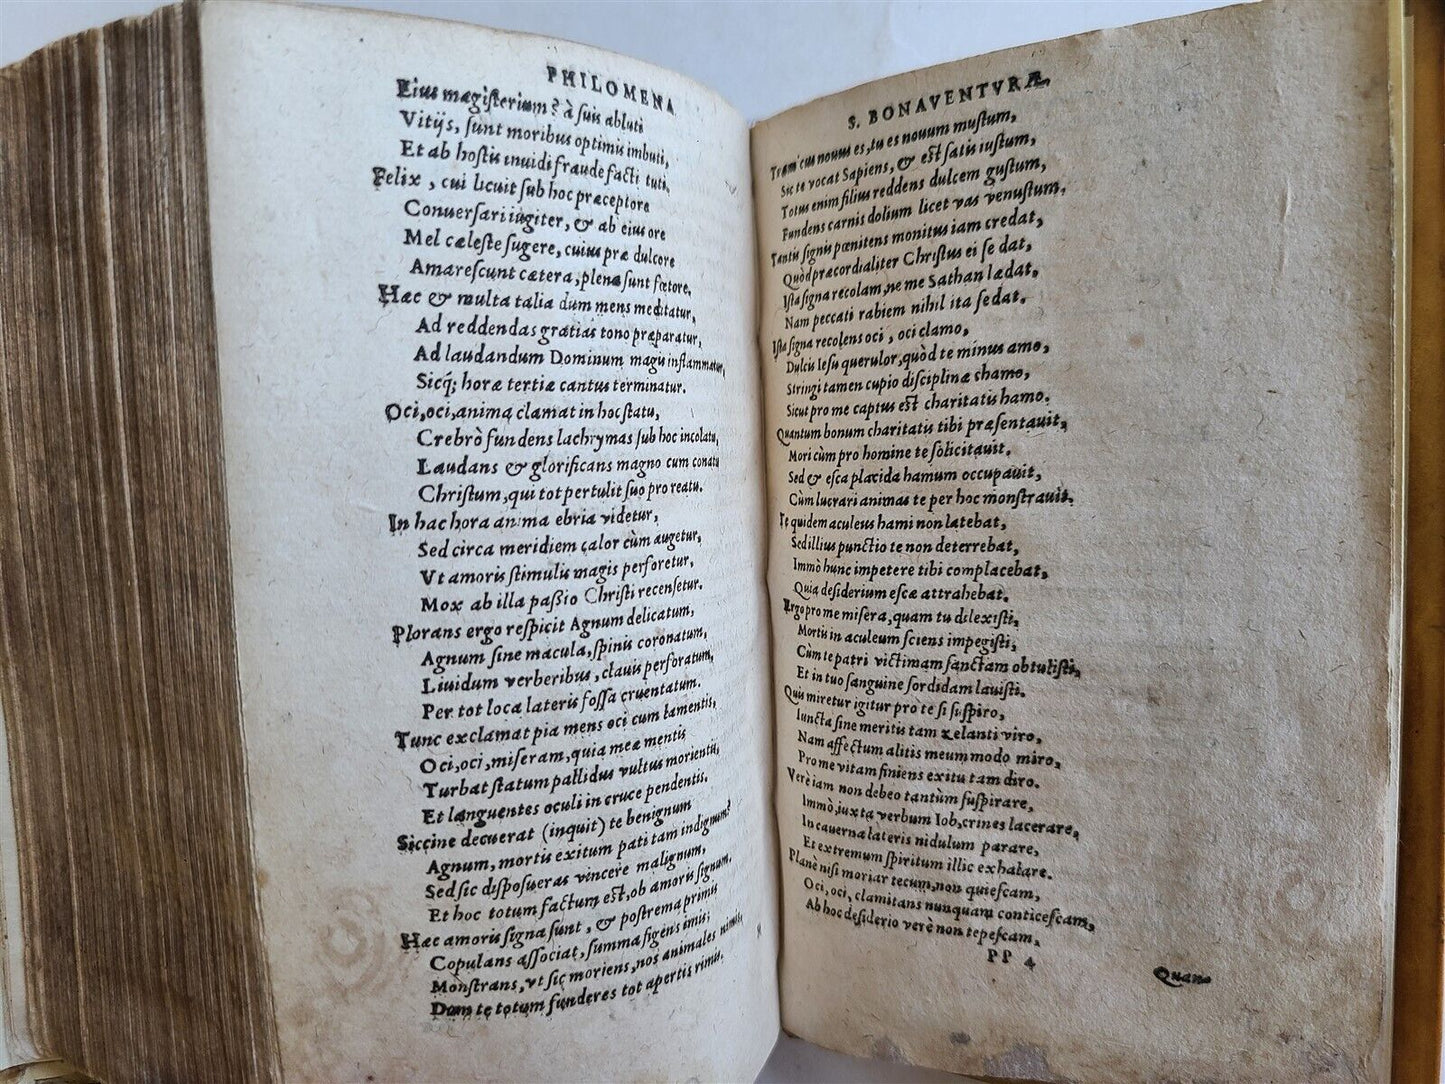 PHILOMENA
Eius magisterium? à suis abluti
Vitijs, sunt moribus optimis imbuti,
Et ab hostis inuidi fraude facti tuti.
Felix, cui licuit sub hoc præceptore
Conuersari iugiter, & ab eius ore
Mel cæleste sugere, cuius præ dulcore
Amarescunt cætera, plena sunt fœtore.
Hæc & multa talia dum mens meditatur,
Ad reddendas gratias tono præparatur,
Ad laudandum Dominum magis inflammatur,
Sicq; horæ tertiæ cantus terminatur.
Oci, oci, anima clamat in hoc statu,
Crebrò fundens lachrymas sub hoc incolatu,
Laudans & glorificans magno cum conatu
Christum, qui tot pertulit suo pro reatu.
In hac hora anima ebria videtur,
Sed circa meridiem calor cùm augetur,
Vt amoris stimulis magis perforetur,
Mox ab illa paßio Christi recensetur.
Plorans ergo respicit Agnum delicatum,
Agnum sine macula, spinis coronatum,
Liuidum verberibus, clauis perforatum,
Per tot loca lateris fossa cruentatum.
Tunc exclamat pia mens oci cum lamentis,
Oci, oci, miseram, quia meæ mentis
Turbat statum pallidus vultus morientis,
Et languentes oculi in cruce pendentis.
Siccine decuerat (inquit) te benignum
Agnum, mortis exitum pati tam indignum?
Sed sic disposueras vincere malignum,
Et hoc totum factum est, ob amoris signum.
Hæc amoris signa sunt, & postrema primis
Copulans associat, summa figens imis;
Monstrans, vt sic moriens, nos animales nimis,
Dum te totum funderes tot apertis rimis.
S. BONAVENTVRÆ
es, tu es nouum mustum,
Sic te vocat Sapiens, & est satis iustum,
Totus enim filius reddens dulcem gustum,
Fundens carnis dolium licet vas venustum.
Tantis signis pœnitens monitus iam credat,
Quòd præcordialiter Christus ei se dat,
Ista signa recolam, ne me Sathan lædat,
Nam peccati rabiem nihil ita sedat.
Ista signa recolens oci, oci clamo,
Dulcis Iesu querulor, quòd te minus amo,
Stringi tamen cupio disciplinæ chamo,
Sicut pro me captus est charitatis hamo.
Quantum bonum charitatis tibi præsentauit,
Mori cùm pro homine te solicitauit.
Sed & esca placida hamum occupauit,
Cùm lucrari animas te per hoc monstrauit.
Te quidem aculeus hami non latebat,
Sed illius punctio te non deterrebat,
Immò hunc impetere tibi complacebat,
Quia desiderium escæ attrahebat.
Ergo pro me misera, quam tu dilexisti,
Mortis in aculeum sciens impegisti,
Cùm te patri victimam sanctam obtulisti,
Et in tuo sanguine sordidam lauisti.
Quis miretur igitur pro te si suspiro,
Iuncta sine meritis tam zelanti viro,
Nam affectum alitis meum modo miro,
Pro me vitam finiens exitu tam diro.
Verè iam non debeo tantùm suspirare,
Immò, iuxta verbum Iob, crines lacerare,
In cauerna lateris nidulum parare,
Et extremum spiritum illic exhalare.
Planè nisi moriar tecum, non quiescam,
Oci, oci, clamitans nunquam conticescam,
Ab hoc desiderio verè non tepescam,
PP 4
Quan-